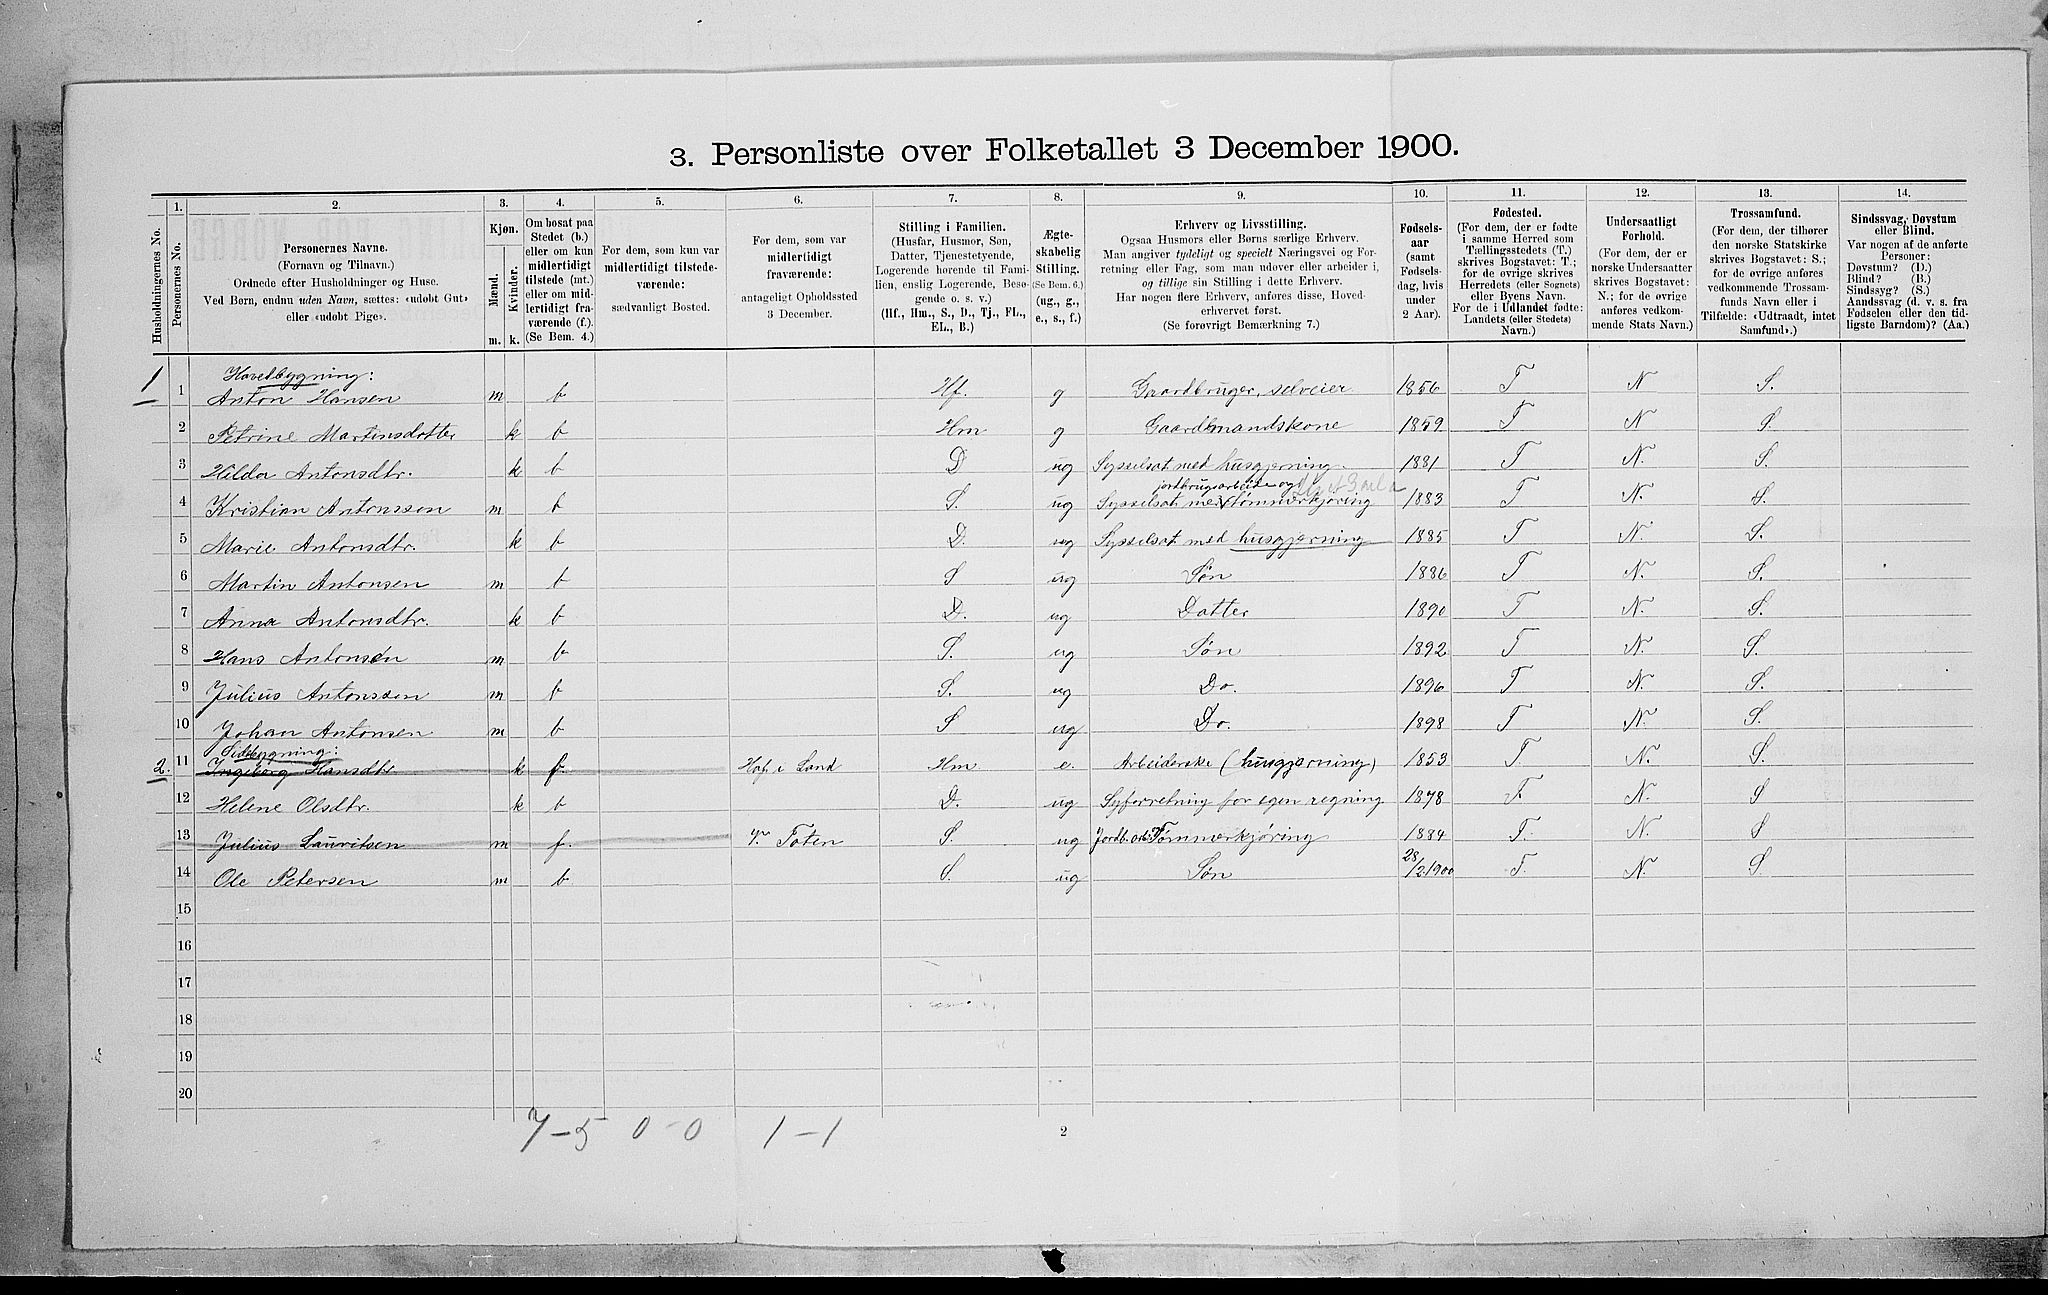 3. Personliste over Folketallet 3 December 1900.
Husholdningernes No.
1. Personernes No.
2. Personernes Navne. (Fornavn og Tilnavn.) Ordnede efter Husholdninger og Huse. Ved Børn, endnu uden Navn, sættes: «udøbt Gut» eller «udøbt Pige».
3. Kjøn. Mænd. m. Kvinder. k.
4. Om bosat paa Stedet (b.) eller om kun midlertidigt tilstede (mt.) eller om midlertidigt fraværende (f.). (Se Bem. 4.)
5. For dem, som kun var midlertidigt tilstedeværende: sædvanligt Bosted.
6. For dem, som var midlertidigt fraværende: antageligt Opholdssted 3 December.
7. Stilling i Familien. (Husfar, Husmor, Søn, Datter, Tjenestetyende, Logerende hørende til Familien, enslig Logerende, Besøgende o. s. v.) (Hf., Hm., S., D., Tj., FL., EL., B.)
8. Ægteskabelig Stilling. (Se Bem. 6.) (ug., g., e., s., f.)
9. Erhverv og Livsstilling. Ogsaa Husmors eller Børns særlige Erhverv. Man angiver tydeligt og specielt Næringsvei og Forretning eller Fag, som man udøver eller arbeider i, og tillige sin Stilling i dette Erhverv. Har nogen flere Erhverv, anføres disse, Hovederhvervet først. (Se forøvrigt Bemærkning 7.)
10. Fødselsaar (samt Fødselsdag, hvis under 2 Aar).
11. Fødested. (For dem, der er fødte i samme Herred som Tællingsstedets (T.) skrives Bogstavet: T.; for de øvrige skrives Herredets (eller Sognets) eller Byens Navn. For de i Udlandet fødte: Landets (eller Stedets) Navn.)
12. Undersaatligt Forhold. (For dem, der er norske Undersaatter skrives Bogstavet: N.; for de øvrige anføres vedkommende Stats Navn.)
13. Trossamfund. (For dem, der tilhører den norske Statskirke skrives Bogstavet: S.; for de øvrige anføres vedkommende Trossamfunds Navn eller i Tilfælde: «Udtraadt, intet Samfund».)
14. Sindssvag, Døvstum eller Blind. Var nogen af de anførte Personer: Døvstum? (D.) Blind? (B.) Sindssyg? (S.) Aandssvag (d. v. s. fra Fødselen eller den tidligste Barndom)? (Aa.)
Hovedbygning:
1 1 Anton Hansen m b Hf. g Gaardbruger, selveier 1856 T N S.
2 Petrine Martinsdatter k b Hm g Gaardmandskone 1859 T N S.
3 Hilda Antonsdtr. k b D ug Sysselsat med husgjerning. 1881 T N. S.
jordbrugsarbeide og
4 Kristian Antonssen m b S. ug Sysselsat med tømmerkjøring 1883 T N. S.
5 Marie Antonsdtr. k b D. ug Sysselsat med husgjerning 1885 T N. S.
6 Martin Antonsen m b S ug Søn 1886 T N. S.
7 Anna Antonsdtr. k b D. ug Datter 1890 T N. S.
8 Hans Antonsen m b S. ug Søn 1892 T N. S.
9 Julius Antonssen m b S. ug Do. 1896 T N. S.
10 Johan Antonsen m b S ug Do. 1898 T N. S.
Sidebygning:
2. 11 Ingeborg Hansdtr k f. Hof i Land Hm e. Arbeiderske (husgjerning) 1853 T. N. S.
12 Helene Olsdtr. k b D. ug Syforretning for egen regning 1878 T. N. S
13 Julius Lauritsen m f. V. Toten S. ug Jordb. arb. Tømmerkjøring 1884 T. N. S
14 Ole Petersen m b S. ug Søn 28/2 1900 T. N. S.
15
16
17
18
19
20
7-5 0-0 1-1
2